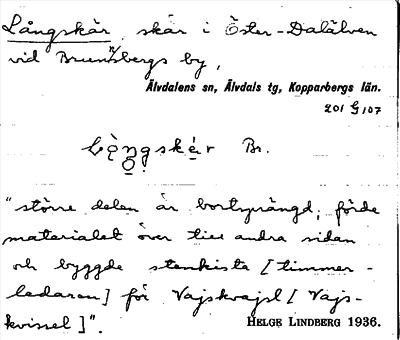 Långskär, skär i Öster-Dalälven
vid Brunnsbergs by,
Älvdalens sn, Älvdals tg, Kopparbergs län.
201 G 107
skér Br.
"större delen är bortsprängd, förde
materialet över till andra sidan
och byggde stenkista [timmer-
ledaren] för Vajskvajsl [Vajs-
kvissel]".
HELGE LINDBERG 1936.